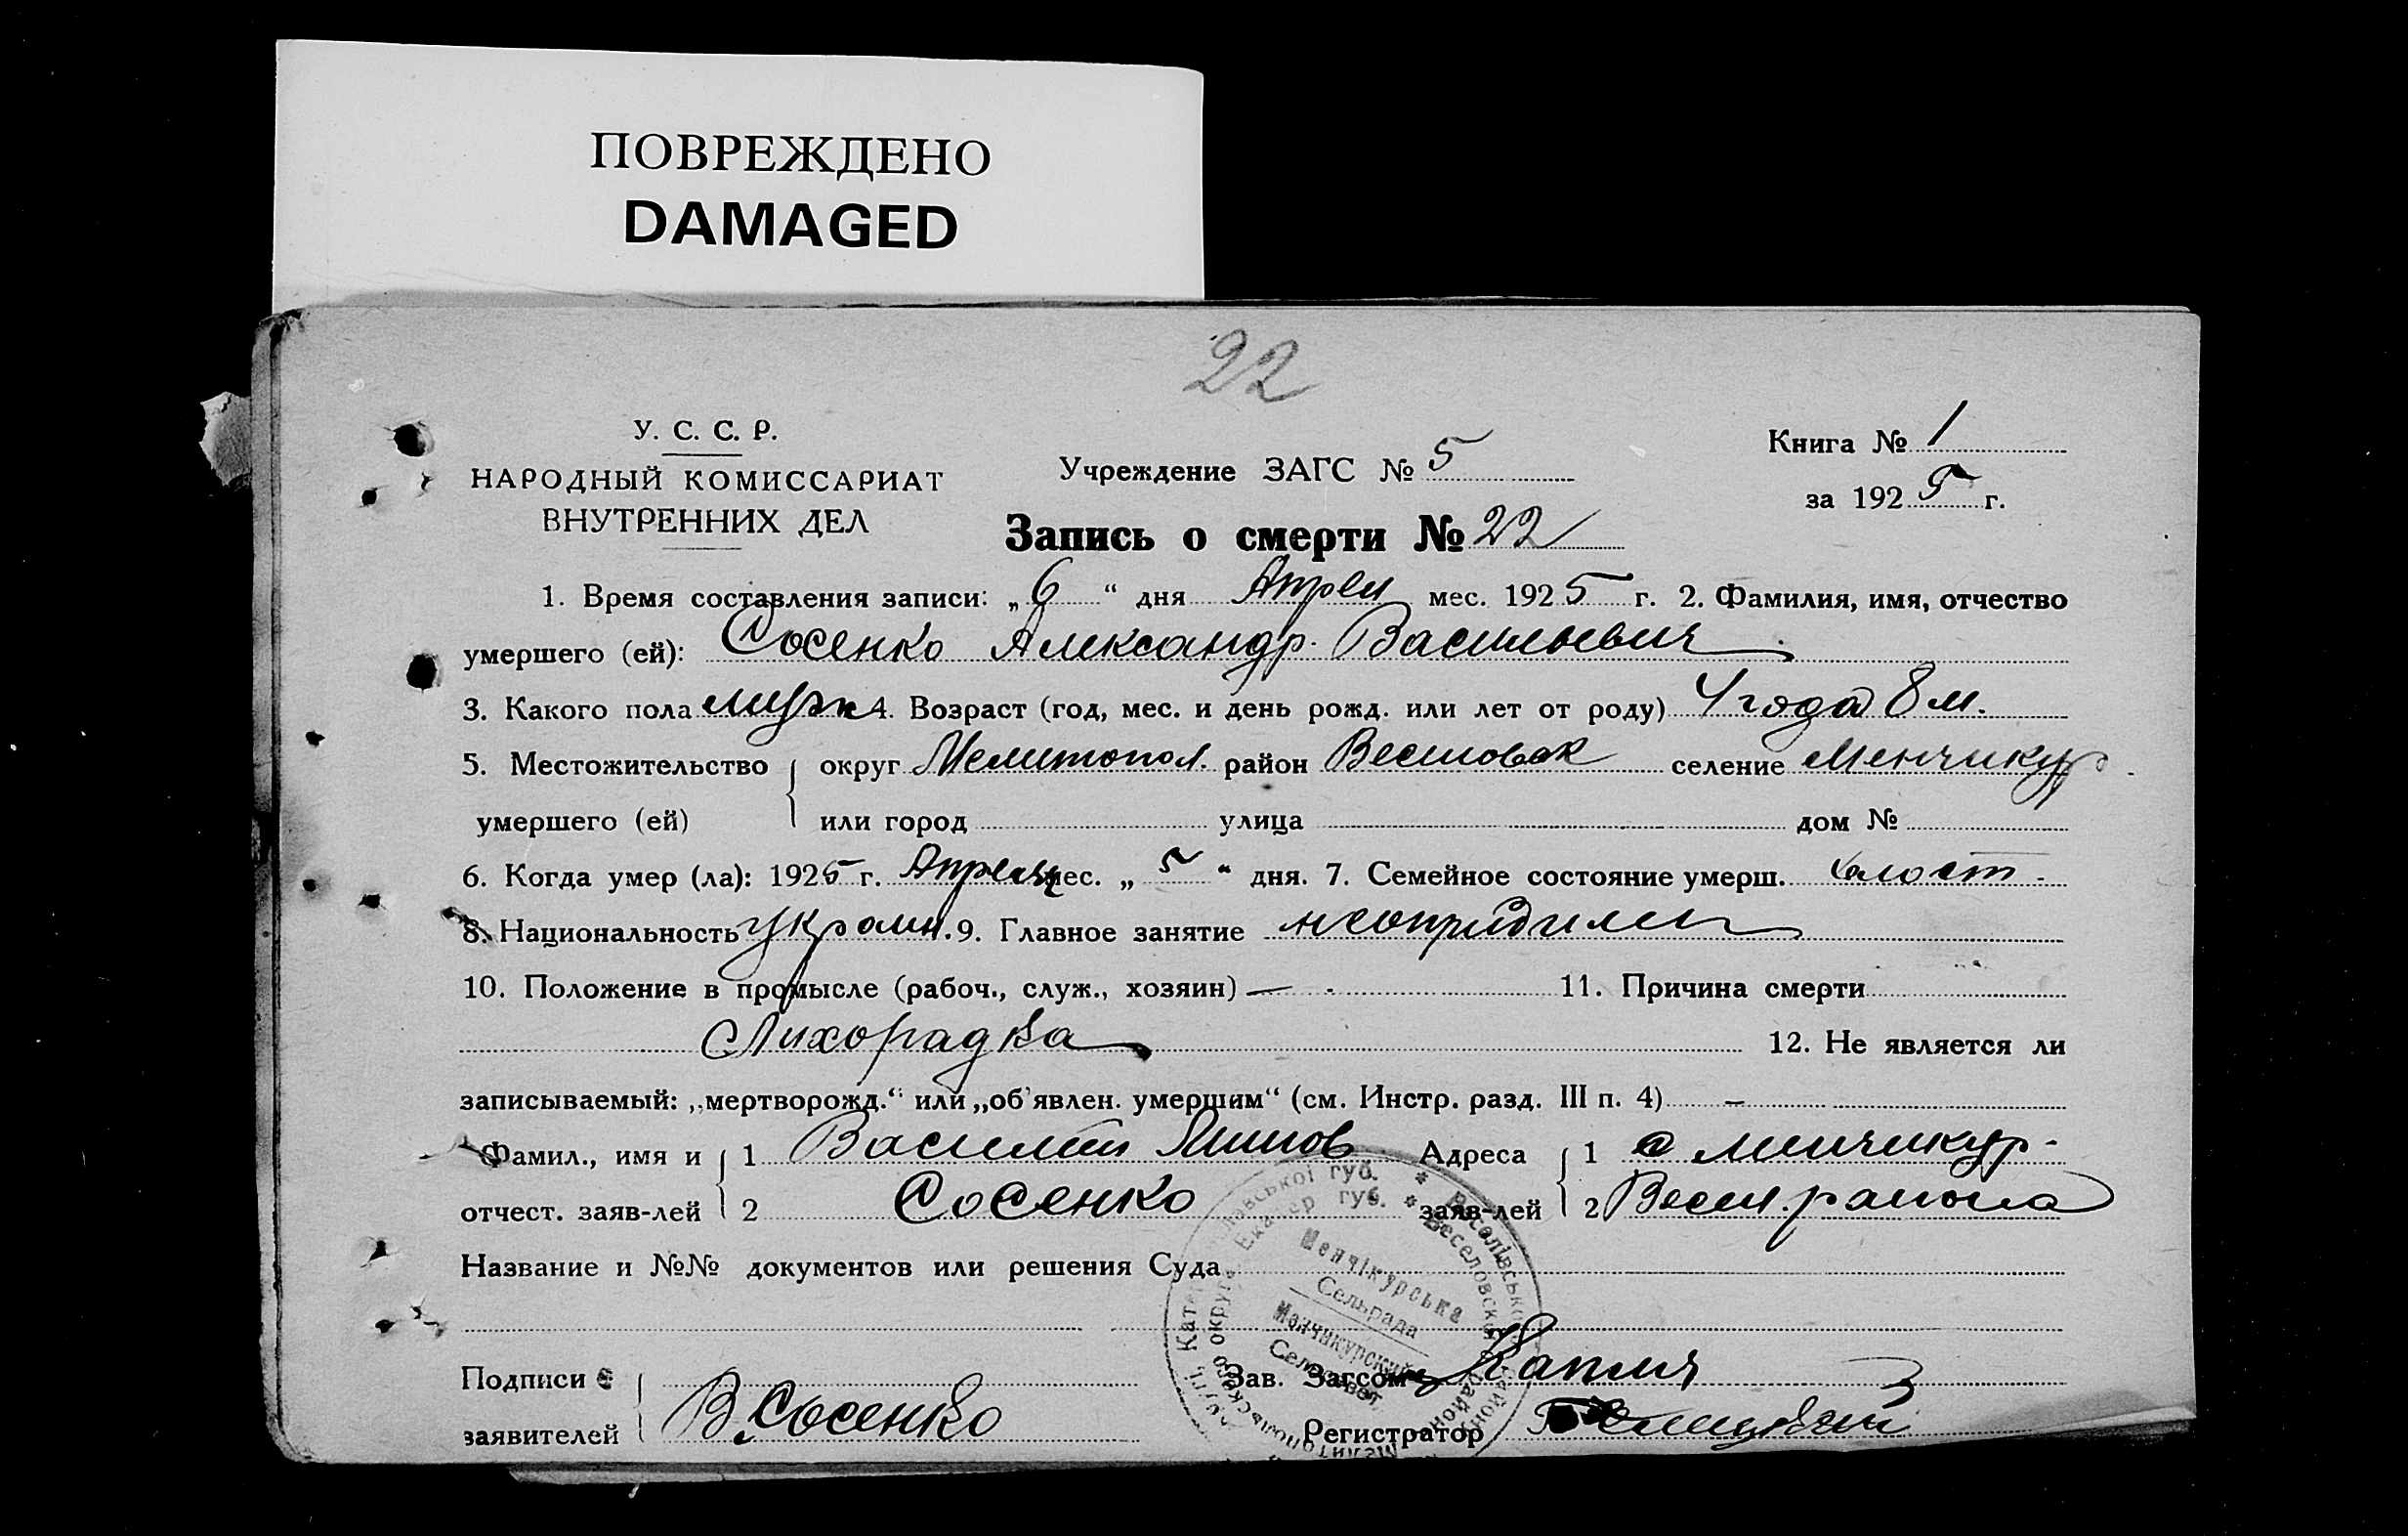 ПОВРЕЖДЕНО
DAMAGED
22
У. С. С. Р.
НАРОДНЫЙ КОМИССАРИАТ
ВНУТРЕННИХ ДЕЛ
Учреждение ЗАГС № 5
Книга № 1
за 1925 г.
Запись о смерти № 22
1. Время составления записи: „6“ дня Апрел мес. 1925 г. 2. Фамилия, имя, отчество
умершего (ей): Сосенко Александр Васильевич
3. Какого пола мужч 4. Возраст (год, мес. и день рожд. или лет от роду) 4 года 8 м.
5. Местожительство округ Мелитопол. район Веселовск селение Менчикур
умершего (ей) или город улица дом №
6. Когда умер (ла): 1925 г. Апреля мес. „5“ дня. 7. Семейное состояние умерш. холост -
8. Национальность Украин. 9. Главное занятие неопридилен
10. Положение в промысле (рабоч., служ., хозяин) — 11. Причина смерти
Лихорадка 12. Не является ли
записываемый: „мертворожд.“ или „об'явлен. умершим“ (см. Инстр. разд. III п. 4) –
Фамил., имя и 1 Василий Адреса 1 с Менчикур-
отчест. заяв-лей 2 Сосенко заяв-лей 2 Весел. района
Название и №№ документов или решения Суда
Менчікурська
Сельрада
Менчикурский
Сельсовет.
Подписи Зав. Загсом
заявителей В. Сосенко Регистратор